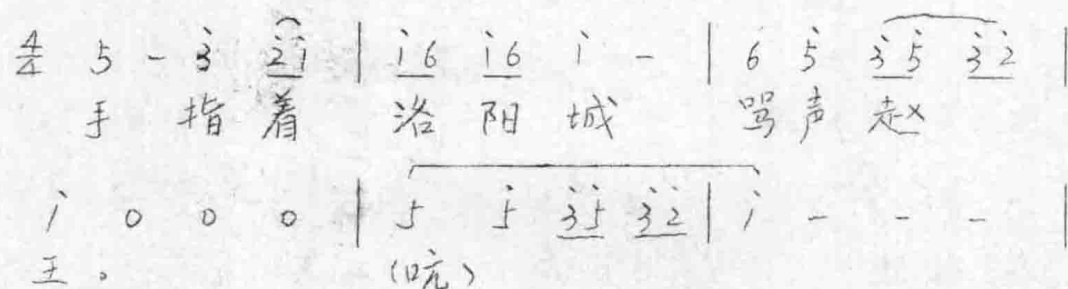 4/4 5 - 3̇ 2̇1̇ | 1̇6 1̇6 1̇ - | 6 5 3̇5̇ 3̇2̇ |
手 指 着 洛 阳 城 骂 声 赵
1̇ 0 0 0 | 5̇ 5̇ 3̇5̇ 3̇2̇ | 1̇ - - - |
王。 (吭)